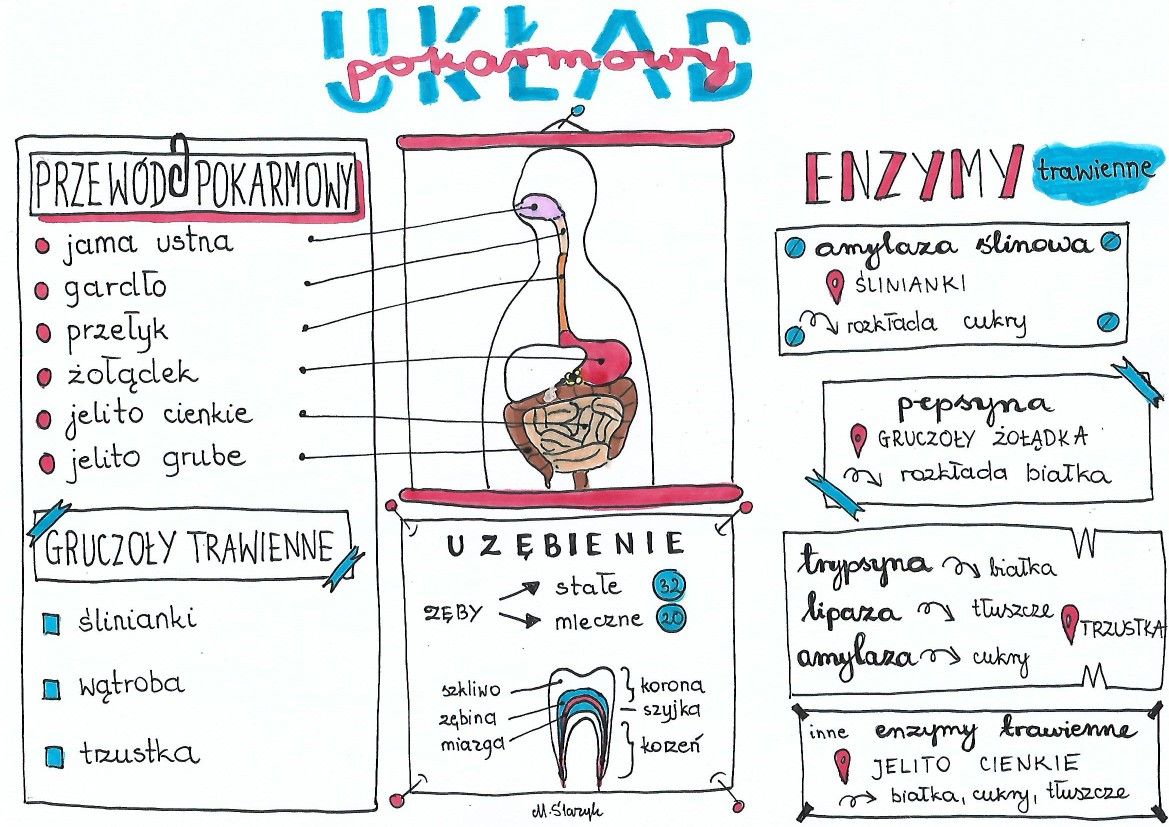 UKŁAD
pokarmowy
PRZEWÓD POKARMOWY
jama ustna
gardło
przełyk
żołądek
jelito cienkie
jelito grube
GRUCZOŁY TRAWIENNE
ślinianki
wątroba
trzustka
UZĘBIENIE
ZĘBY
stałe 32
mleczne 20
szkliwo
zębina
miazga
korona
szyjka
korzeń
M.Ślarzyk
ENZYMY trawienne
amylaza ślinowa
ŚLINIANKI
rozkłada cukry
pepsyna
GRUCZOŁY ŻOŁĄDKA
rozkłada białka
trypsyna białka
lipaza tłuszcze
TRZUSTKA
amylaza cukry
inne enzymy trawienne
JELITO CIENKIE
białka, cukry, tłuszcze